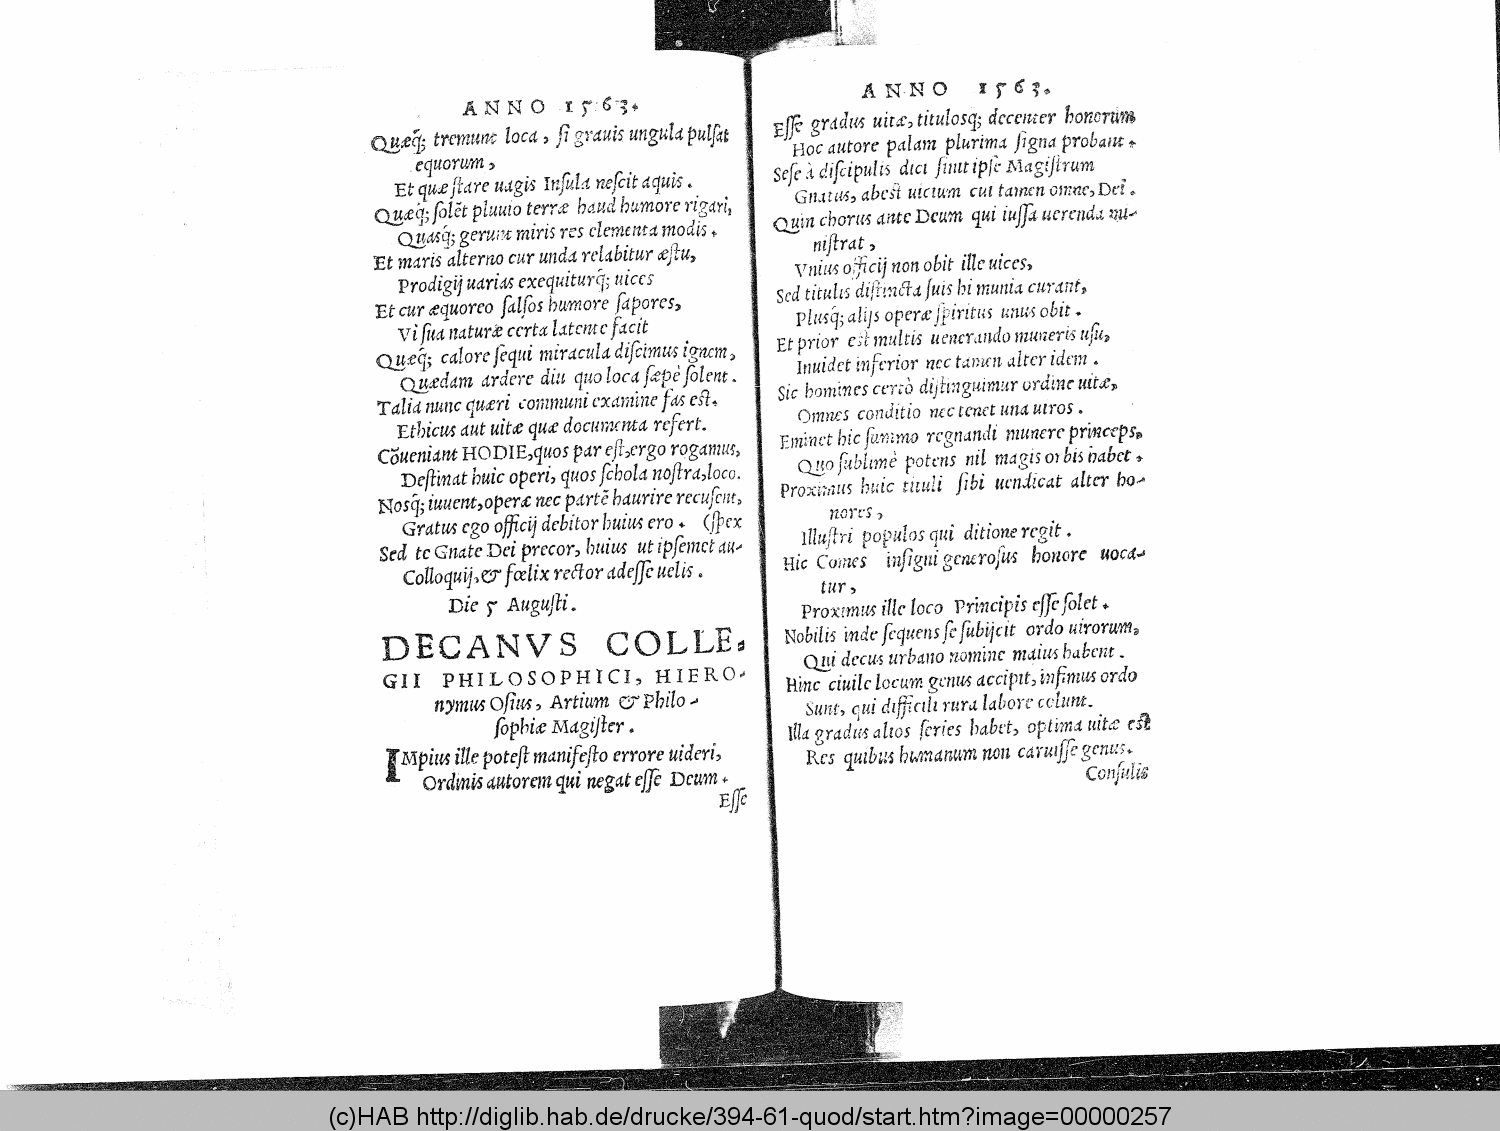 ANNO 1563.
Quæq́; tremunt loca, ſi grauis ungula pulſat
equorum,
Et quæ ſtare uagis Inſula neſcit aquis.
Quæq́; ſolẽt pluuio terræ haud humore rigari,
Quasq́; gerunt miris res clementa modis.
Et maris alterno cur unda relabitur æſtu,
Prodigij uarias exequiturq́; uices
Et cur æquoreo ſalſos humore ſapores,
Vi ſua naturæ certa latente facit
Quæq́; calore ſequi miracula diſcimus ignem,
Quædam ardere diu quo loca ſæpè ſolent.
Talia nunc quæri communi examine fas eſt,
Ethicus aut uitæ quæ documenta refert.
Cõueniant HODIE, quos par eſt, ergo rogamus,
Deſtinat huic operi, quos ſchola noſtra, loco.
Nosq́; iuuent, operæ nec partẽ haurire recuſent,
Gratus ego officij debitor huius ero. (ſpex
Sed te Gnate Dei precor, huius ut ipſemet au-
Colloquij, & fœlix rector adeſſe uelis.
Die 5 Auguſti.
DECANVS COLLE-
GII PHILOSOPHICI, HIERO-
nymus Oſius, Artium & Philo-
ſophiæ Magiſter.
IMpius ille poteſt manifeſto errore uideri,
Ordinis autorem qui negat eſſe Deum.
Eſſe
ANNO 1563.
Eſſe gradus uitæ, titulosq; decenter honorum
Hoc autore palam plurima ſigna probant.
Seſe à diſcipulis dici ſinit ipſe Magiſtrum
Gnatus, abeſt uicium cui tamen omne, Dei.
Quin chorus ante Deum qui iuſſa uerenda mi-
niſtrat,
Vnius officij non obit ille uices,
Sed titulis diſtincta ſuis hi munia curant,
Plusq́; alijs operæ ſpiritus unus obit.
Et prior eſt multis uenerando muneris uſu,
Inuidet inferior nec tamen alter idem.
Sic homines certò diſtinguimur ordine uitæ,
Omnes conditio nec tenet una uiros.
Eminet hic ſummo regnandi munere princeps,
Quo ſublimè potens nil magis orbis habet.
Proximus huic tituli ſibi uendicat alter ho-
nores,
Illuſtri populos qui ditione regit.
Hic Comes inſigni generoſus honore uoca-
tur,
Proximus ille loco Principis eſſe ſolet.
Nobilis inde ſequens ſe ſubijcit ordo uirorum,
Qui decus urbano nomine maius habent.
Hinc ciuile locum genus accipit, infimus ordo
Sunt, qui difficili rura labore colunt.
Illa gradus altos ſeries habet, optima uitæ eſt
Res quibus humanum non caruiſſe genus.
Conſulis
(c)HAB http://diglib.hab.de/drucke/394-61-quod/start.htm?image=00000257